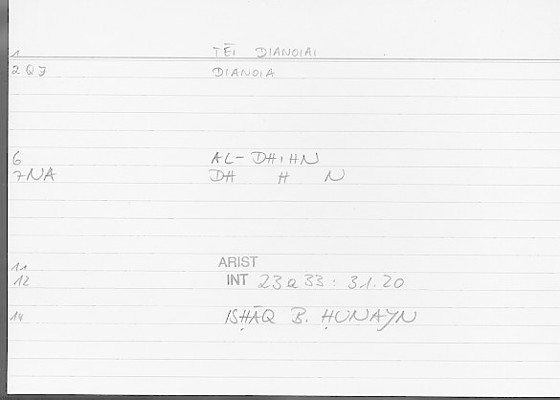 1 TĒI DIANOIAI
2 QJ DIANOIA
6 AL-DHIHN
7NA DH H N
11 ARIST
12 INT 23a33: 31.20
14 ISḤĀQ B. ḤUNAYN